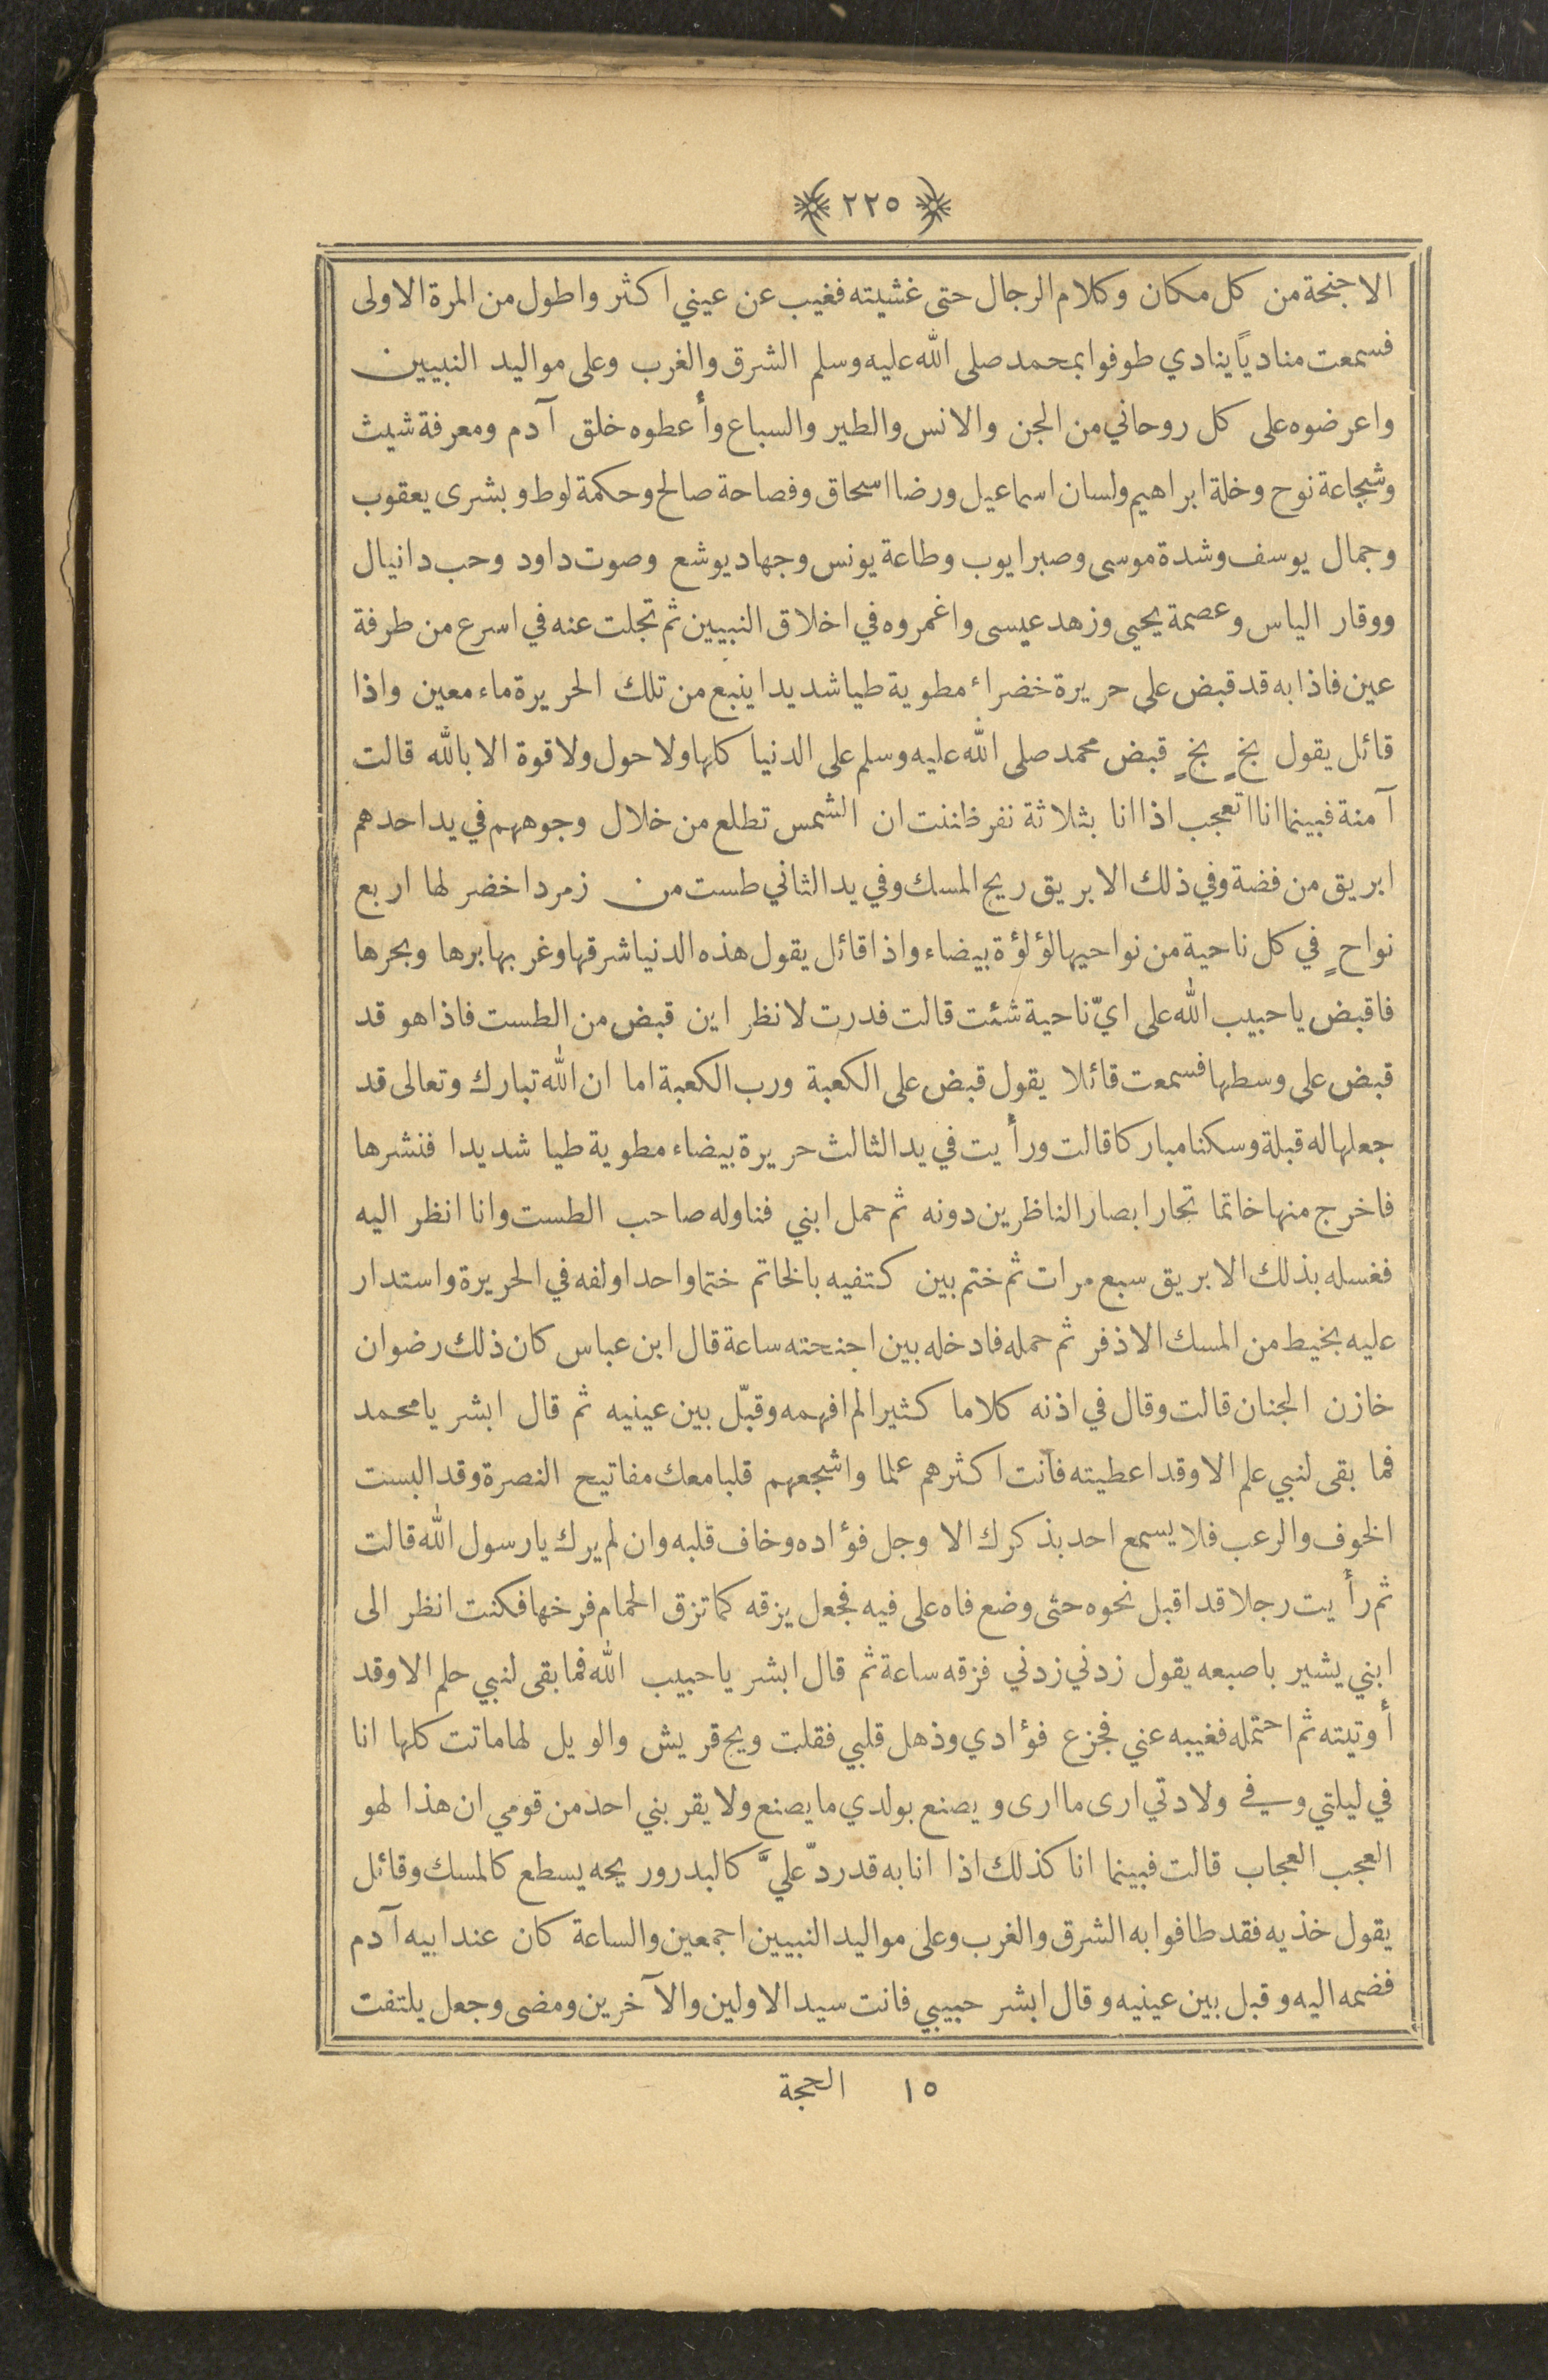 ٢٢٥
الاجنحة من كل مكان وكلام الرجال حتى غشيته فغيب عن عيني اكثر واطول من المرة الاولى
فسمعت مناديًا ينادي طوفوا بمحمد صلى الله عليه وسلم الشرق والغرب وعلى مواليد النبيين
واعرضوه على كل روحاني من الجن والانس والطير والسباع وأعطوه خلق آدم ومعرفة شيث
وشجاعة نوح وخلة ابراهيم ولسان اسماعيل ورضا اسحاق وفصاحة صالح وحكمة لوط وبشرى يعقوب
وجمال يوسف وشدة موسى وصبر ايوب وطاعة يونس وجهاد يوشع وصوت داود وحب دانيال
ووقار الياس وعصمة يحيى وزهد عيسى واغمروه في اخلاق النبيين ثم تجلت عنه في اسرع من طرفة
عين فاذا به قد قبض على حريرة خضراء مطوية طيا شديدا ينبع من تلك الحريرة ماء معين واذا
قائل يقول بخٍ بخٍ قبض محمد صلى الله عليه وسلم على الدنيا كلها ولا حول ولا قوة الا بالله قالت
آمنة فبينما انا اتعجب اذا انا بثلاثة نفر ظننت ان الشمس تطلع من خلال وجوههم في يد احدهم
ابريق من فضة وفي ذلك الابريق ريح المسك وفي يد الثاني طست من زمرد اخضر لها اربع
نواحٍ في كل ناحية من نواحيها لؤلؤة بيضاء واذا قائل يقول هذه الدنيا شرقها وغربها برها وبحرها
فاقبض يا حبيب الله على ايّ ناحية شئت قالت فدرت لانظر اين قبض من الطست فاذا هو قد
قبض على وسطها فسمعت قائلا يقول قبض على الكعبة ورب الكعبة اما ان الله تبارك وتعالى قد
جعلها له قبلة وسكنا مباركا قالت ورأيت في يد الثالث حريرة بيضاء مطوية طيا شديدا فنشرها
فاخرج منها خاتما تحار ابصار الناظرين دونه ثم حمل ابني فناوله صاحب الطست وانا انظر اليه
فغسله بذلك الابريق سبع مرات ثم ختم بين كتفيه بالخاتم ختما واحدا ولفه في الحريرة واستدار
عليه بخيط من المسك الاذفر ثم حمله فادخله بين اجنحته ساعة قال ابن عباس كان ذلك رضوان
خازن الجنان قالت وقال في اذنه كلاما كثيرا لم افهمه وقبّل بين عينيه ثم قال ابشر يا محمد
فما بقى لنبي علم الا وقد اعطيته فأنت اكثرهم علما واشجعهم قلبا معك مفاتيح النصرة وقد البست
الخوف والرعب فلا يسمع احد بذكرك الا وجل فؤاده وخاف قلبه وان لم يرك يا رسول الله قالت
ثم رأيت رجلا قد اقبل نحوه حتى وضع فاه على فيه فجعل يزقه كما تزق الحمام فرخها فكنت انظر الى
ابني يشير باصبعه يقول زدني زدني فزقه ساعة ثم قال ابشر يا حبيب الله فما بقى لنبي حلم الا وقد
أوتيته ثم احتمله فغيبه عني فجزع فؤادي وذهل قلبي فقلت ويح قريش والويل لها ماتت كلها انا
في ليلتي وفي ولادتي ارى ما ارى ويصنع بولدي ما يصنع ولا يقربني احد من قومي ان هذا لهو
العجب العجاب قالت فبينما انا كذلك اذا انا به قد ردّ عليَّ كالبدر وريحه يسطع كالمسك وقائل
يقول خذيه فقد طافوا به الشرق والغرب وعلى مواليد النبيين اجمعين والساعة كان عند ابيه آدم
فضمه اليه وقبل بين عينيه وقال ابشر حبيبي فانت سيد الاولين والآخرين ومضى وجعل يلتفت
١٥ الحجة